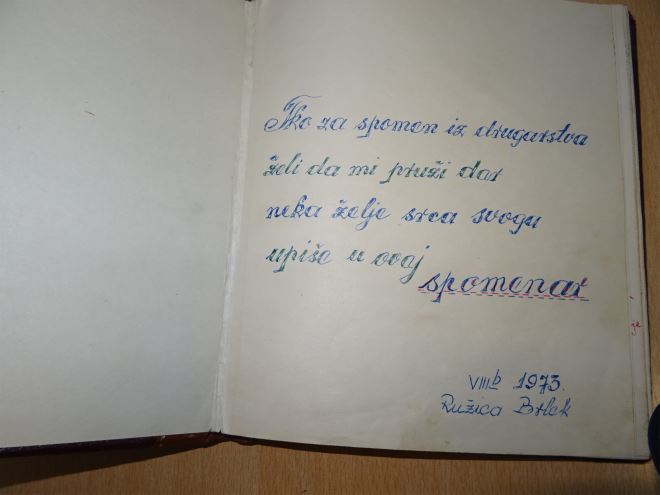 Tko za spomen iz drugarstva
želi da mi pruži dar
neka želje srca svogu
upiše u ovaj
spomenar
VIIIb 1973.
Ružica Brlek
je